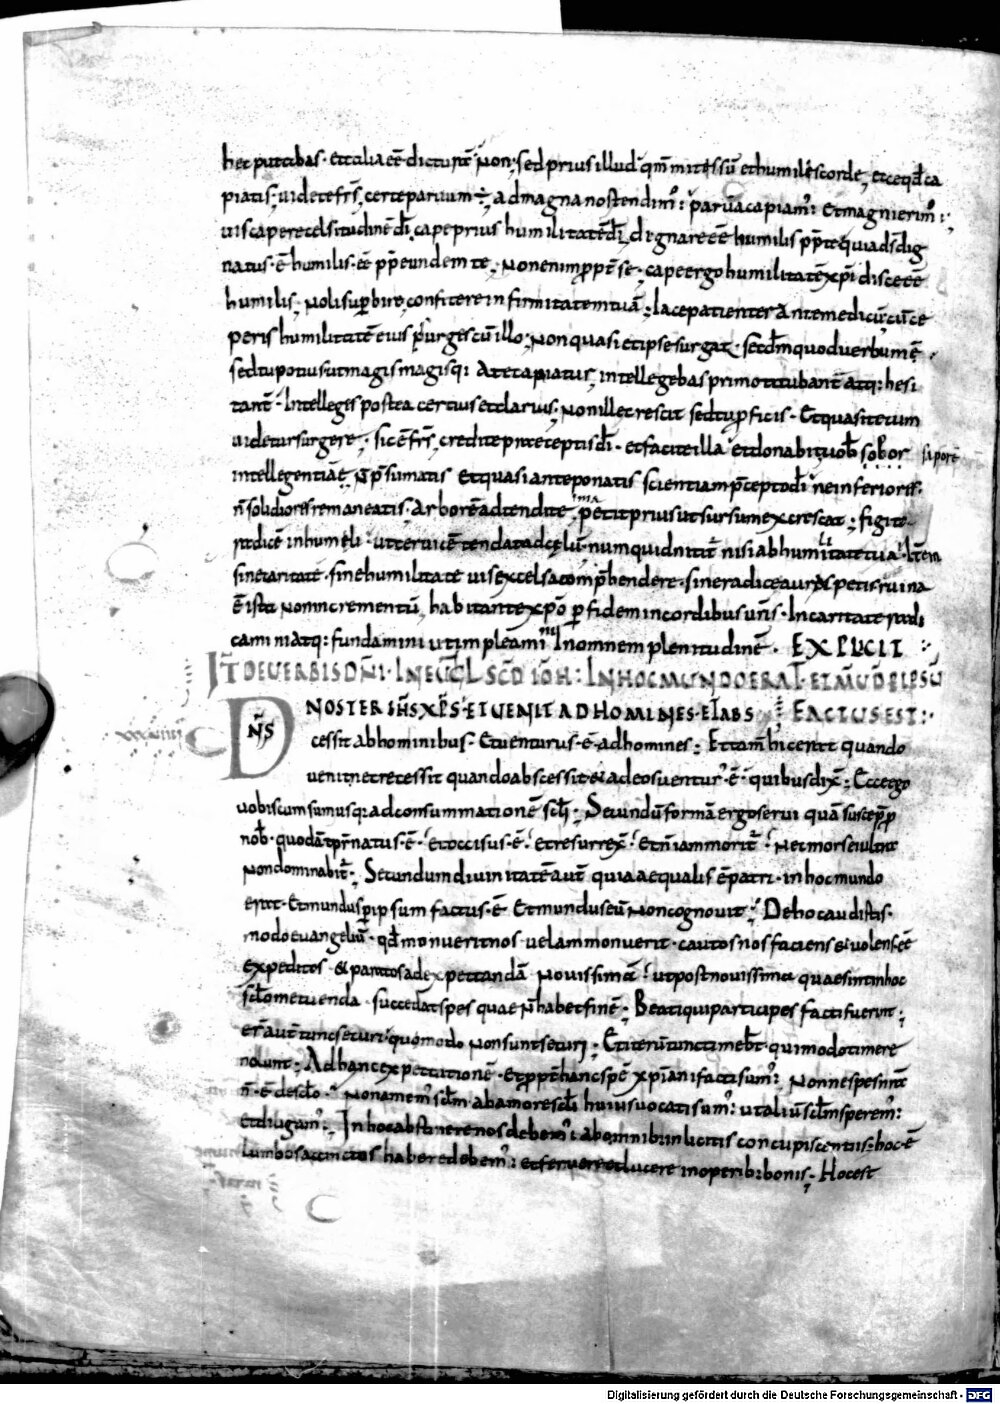 hec putabas · et talia eē dicturū · Non · sed prius illud qm̄ mitis sū et humilis corde · et ce qd̄ ca
piatis · uidete frs̄, certe paruum ÷, ad magna nos tendim᷒ : parua capiam᷒ : et magni erim᷒ :
uis capere celsitudinē dī, cape prius humilitatē dī, dignare eē humilis pp̄ te quia ds̄ dig
natus · ē humilis · eē pp̄ eundem te · Non enim ꝓpt̄ se · cape ergo humilitatē xp̄i disce eē
humilis · Noli supbire, confitere infirmitatem tuā : iace patienter ante medicū, cū ce
peris humilitatē eius surges cū illo : Non quasi et ipse surgat · secd̄m quod uerbum ē ·
sed tu potius ut magis magisq: a te capiatur, intellegebas primo titubant̄ atq: hesi
tant̄ · Intelleges postea certius et clarius · Non ille crescit sed tu ꝓficis · Et quasi tecum
uidetur surgere · sic ē frs̄, credite preceptis dī · et facite illa et donabit uob̄ sobor si pore
intellegentiāe · N̄ p̄sumatis et quasi anteponatis scientiam p̄cepto dī ne inferiores ·
n̄ solidiores remaneatis · Arborē adtendite, ima petit prius ut sursum excrescat : figit
radicē in humili · ut uerticē tendat ad cęlū · numquid nitit̄ nisi ab humilitate tu a · Item
sine caritate · sine humilitate uis excelsa comp̄hendere · sine radice auras petis · ruina
ē ista Non incrementū, habitante xp̄o ꝑ fidem in cordibus uris̄ · In caritate radi
cam̄ini atq: fundamini ut impleamini In omnem plenitudinē · EXPLICIT
IT̄ DE UERBIS DN̄I · IN EUG̅L SCD̄ IOH̄ : IN HOC MUNDO ERAT · ET MUND̄ PER IPSŪ
DN̄S NOSTER IH̄S XP̄S · ET UENIT AD HOMINES · ET ABS FACTUS EST :·
cessit ab hominibus · Et uenturus · ē ad homines : Et tam̄ hic erat quando
uenit nec recessit quando abscessit & ad eos uentur᷒ · ē · quibus dix̄ : Ecce ego
uobiscum sum usq: ad consummationē scl̄i : Secundū formā ergo serui quā suscepꝑ
nob̄ · quodā tp̄r natus · ē · et occisus · ē · et resurrex̄ · et n̄ iam morit̄ · Nec mors ei ultra
Non dominabit̄ · Secundum diuinitatē aut̄ quia aequalis ē patri · in hoc mundo
erat · Et mundus ꝑ ipsum factus · ē Et mundus eū Non cognouit · De hoc audistis ·
modo euangeliū · qd̄ monuerit nos · uel ammonuerit · cautos nos faciens & uolens · eē
expeditos · & paratos ad expectandā Nouissima · ut post nouissima quae sunt in hoc
scl̄o metuenda · succedat spes quae n̄ habet finē · Beati qui participes facti fuerint :
er̄ aut̄ tunc securi quomodo Non sunt securi : Et iterū tunc timebt̄ · qui modo timere
nolunt : Ad hanc expectationē · et ꝓpt̄ hanc spē xp̄iani facti sum᷒ : Non ne spes nr̄a
n̄ · ē de scl̄o · Non amem᷒ scl̄m · ab amore scl̄i huius uocati sum᷒ : ut aliū scl̄m sperem᷒ :
et diligam᷒ : In hoc abstinere nos debem᷒ : ab omnib: inlicitis concupiscentiis : hoc · ē
lumbos accinctos habere debem᷒ : et feruere et lucere in operib: bonis · Hoc est
Digitalisierung gefördert durch die Deutsche Forschungsgemeinschaft · DFG